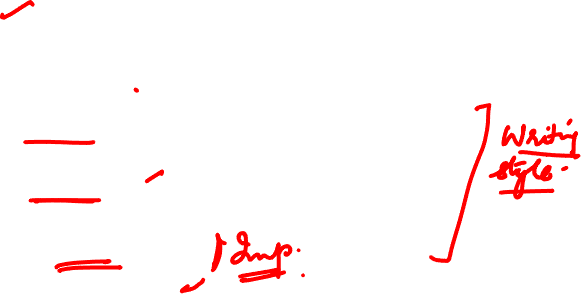 Writing
style.
Imp.